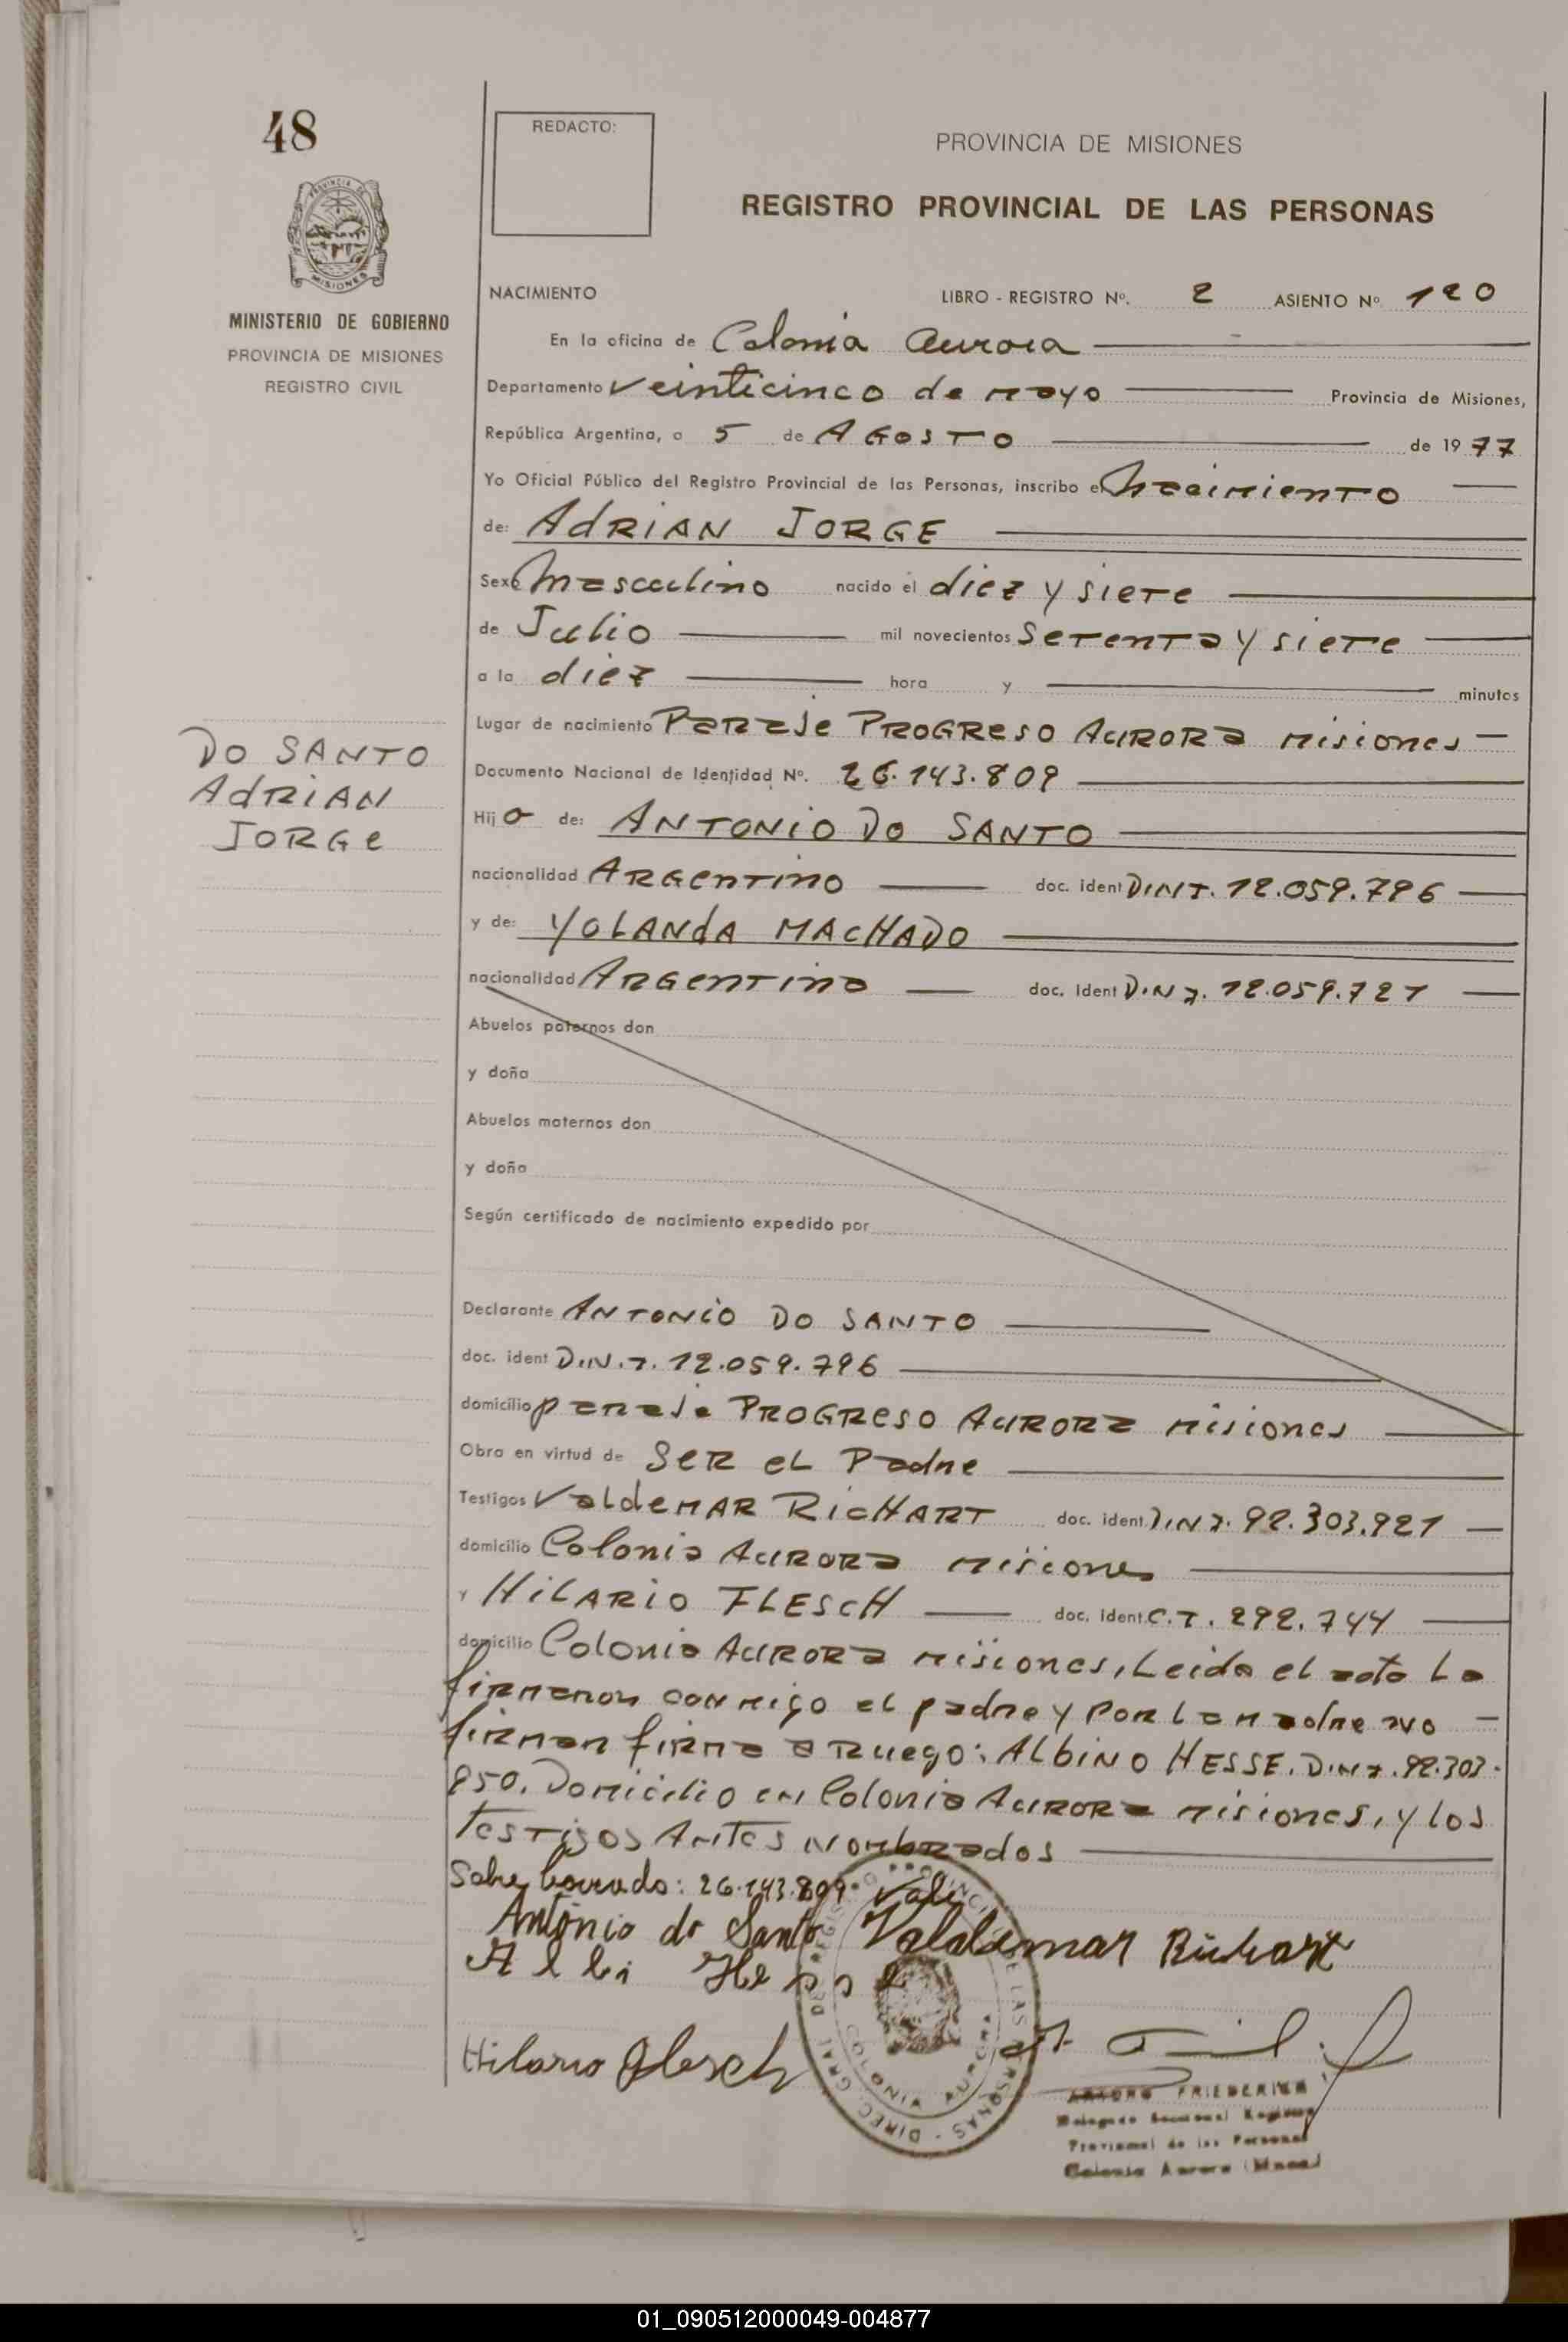 48
REDACTO:
PROVINCIA DE MISIONES
REGISTRO PROVINCIAL DE LAS PERSONAS
PROVINCIA DE
MISIONES
MINISTERIO DE GOBIERNO
PROVINCIA DE MISIONES
REGISTRO CIVIL
NACIMIENTO LIBRO - REGISTRO Nº. 2 ASIENTO Nº 120
En la oficina de Colonia Aurora
Departamento Veinticinco de mayo Provincia de Misiones,
República Argentina, a 5 de AGOSTO de 1977
Yo Oficial Público del Registro Provincial de las Personas, inscribo el Nacimiento
de: AdRIAN JORGE
Sexo Masculino nacido el diez y siete
de Julio mil novecientos Setenta y siete
a la diez hora y minutos
Lugar de nacimiento Paraje PROGReSO AURORA misiones
DO SANTO
AdRIAN
JORGe
Documento Nacional de Identidad Nº. 26.143.809
Hijo de: ANTONIO DO SANTO
nacionalidad ARGentino doc. ident D.N.I. 12.059.796
y de: YOLANdA MACHADO
nacionalidad ARGentina doc. Ident D.N.I. 12.059.721
Abuelos paternos don
y doña
Abuelos maternos don
y doña
Según certificado de nacimiento expedido por
Declarante ANTONIO DO SANTO
doc. ident D.N.I. 12.059.796
domicilio paraje PROGReSO AURORA misiones
Obra en virtud de SeR eL Padre
Testigos ValdeMAR RicHART doc. ident. D.N.I. 92.303.921
domicilio Colonia AURORA misiones
y HiLARiO FLEScH doc. ident. C.I. 292.744
domicilio Colonia AURORA misiones, Leida el acta La
firmaron conmigo el padre y por la madre no
firman firma a Ruego: ALbiNO HESSE. D.N.I. 92.303.
850. Domicilio en Colonia AURORA misiones, y los
testigos Antes Nombrados
Sobre borrado: 26.143.809 Vale
Antônio do Santo Valdemar Richart
Albi Hesse
Hilario Flesch
ARTURO FRIEDERICH
Delegado Seccional Registro
Provincial de las Personas
Colonia Aurora (Mnes)
01_090512000049-004877